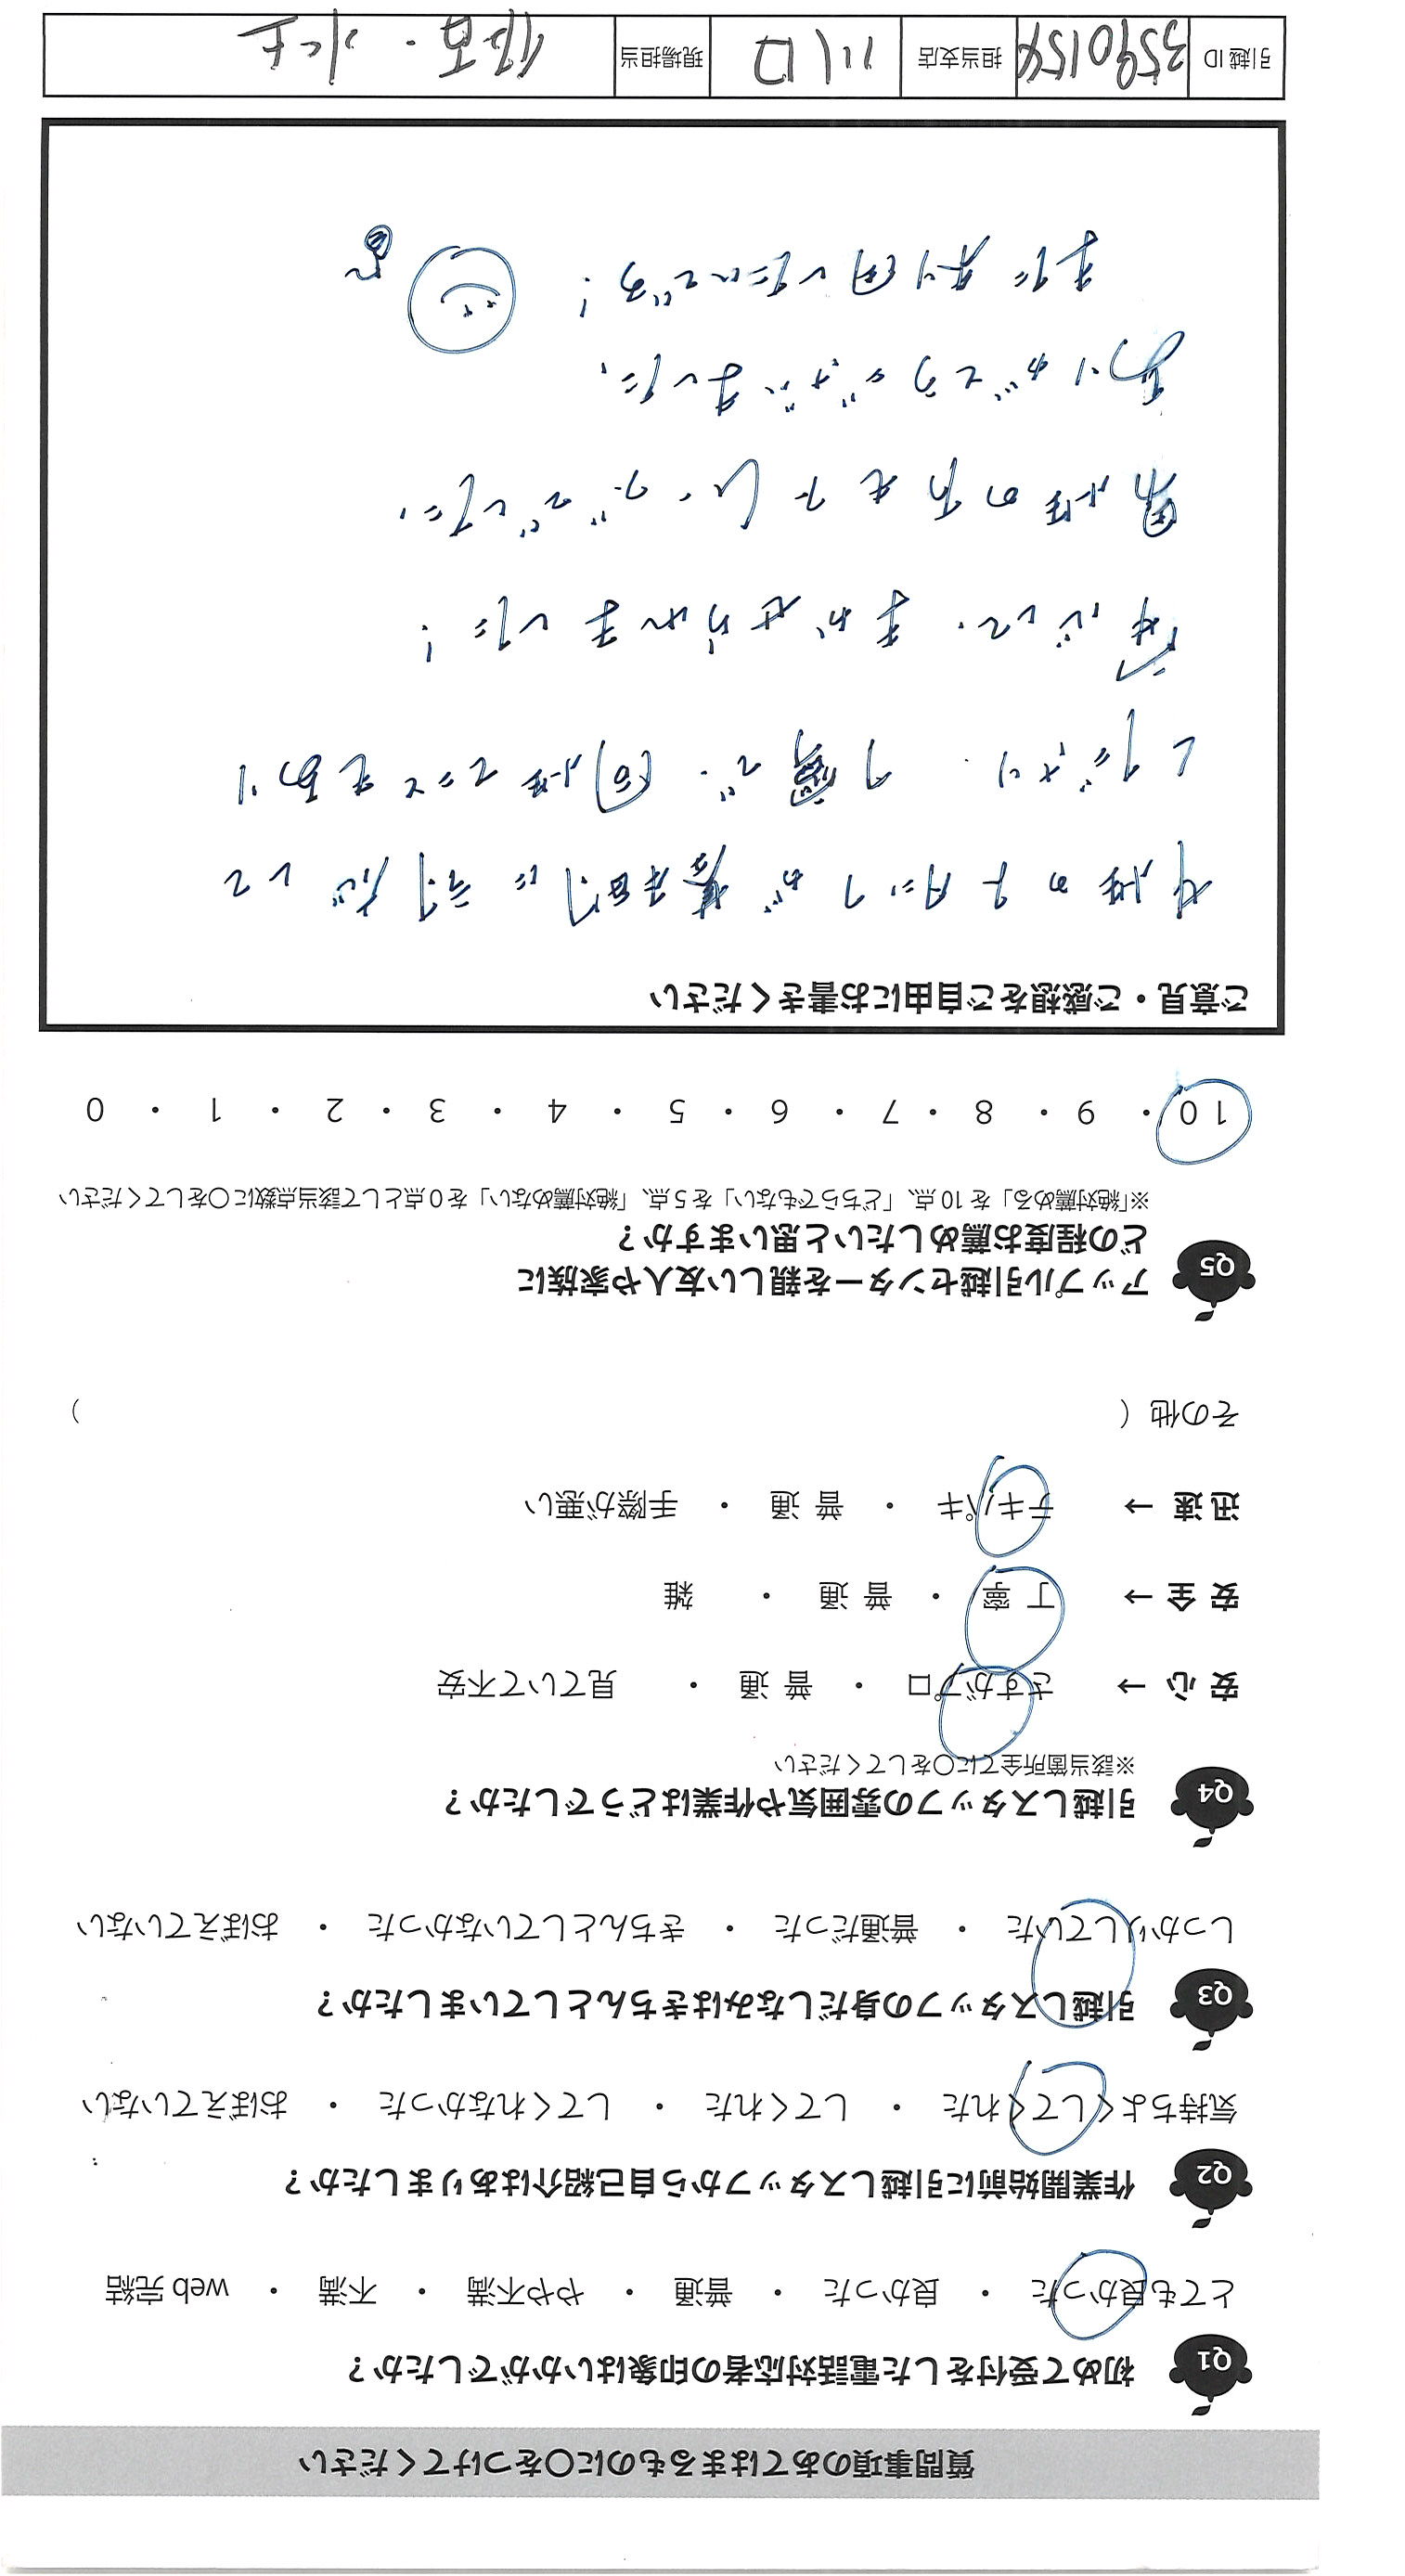 質問事項のあてはまるものに〇をつけてください
Q1 初めて受付をした電話対応者の印象はいかがでしたか？
とても良かった ・ 良かった ・ 普通 ・ やや不満 ・ 不満 ・ web 完結
Q2 作業開始前に引越しスタッフから自己紹介はありましたか？
気持ちよくしてくれた ・ してくれた ・ してくれなかった ・ おぼえていない
Q3 引越しスタッフの身だしなみはきちんとしていましたか？
しっかりしていた ・ 普通だった ・ きちんとしていなかった ・ おぼえていない
Q4 引越しスタッフの雰囲気や作業はどうでしたか？
※該当箇所全てに〇をしてください
安心 → さすがプロ ・ 普通 ・ 見ていて不安
安全 → 丁寧 ・ 普通 ・ 雑
迅速 → テキパキ ・ 普通 ・ 手際が悪い
その他（ ）
Q5 アップル引越センターを親しい友人や家族に
どの程度お薦めしたいと思いますか？
※「絶対薦める」を 10 点、「どちらでもない」を 5 点、「絶対薦めない」を 0 点として該当点数に〇をしてください
10 ・ 9 ・ 8 ・ 7 ・ 6 ・ 5 ・ 4 ・ 3 ・ 2 ・ 1 ・ 0
ご意見・ご感想をご自由にお書きください
女性のスタッフが基本的に対応して
くださり、丁寧で、同性ってこともあり
安心して、まかせられました！
男性の方もナイスでした。
ありがとうございました。
また利用したいです！
引越 ID 3590154 担当支店 川口 現場担当